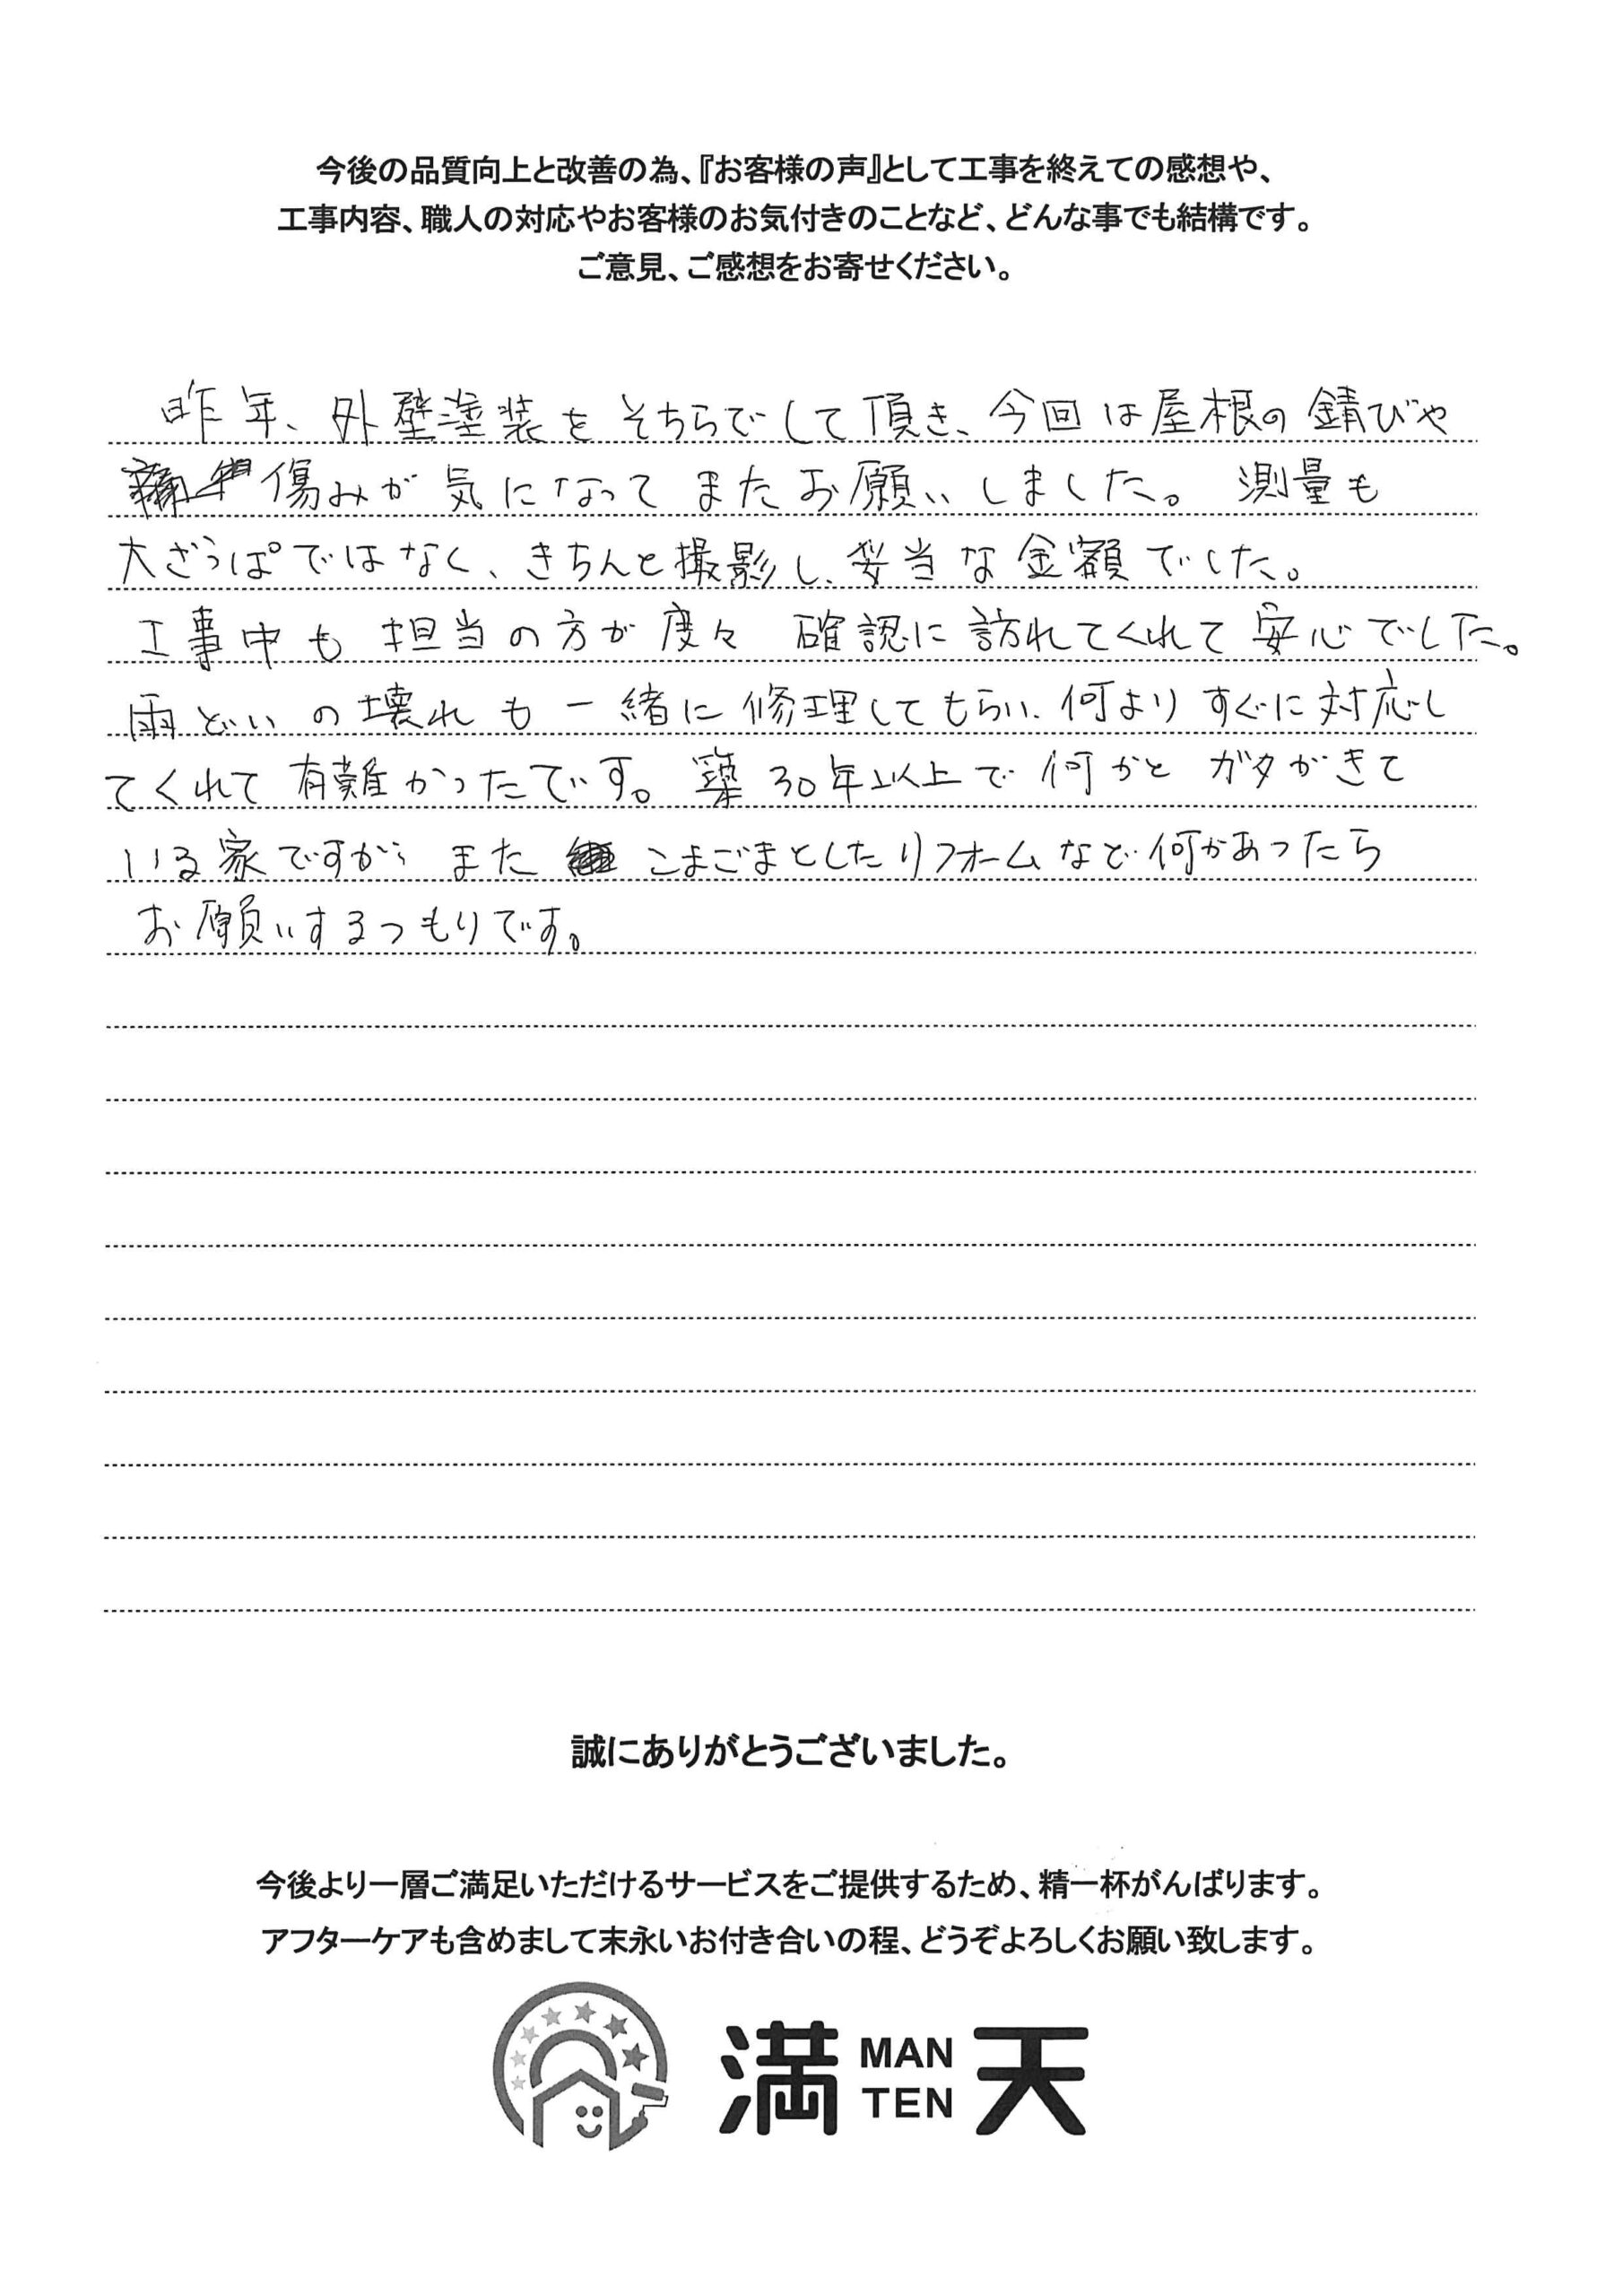 今後の品質向上と改善の為、『お客様の声』として工事を終えての感想や、
工事内容、職人の対応やお客様のお気付きのことなど、どんな事でも結構です。
ご意見、ご感想をお寄せください。
昨年、外壁塗装をそちらでして頂き、今回は屋根の錆びや
傷みが気になってまたお願いしました。測量も
大ざっぱではなく、きちんと撮影し、妥当な金額でした。
工事中も担当の方が度々確認に訪れてくれて安心でした。
雨どいの壊れも一緒に修理してもらい、何よりすぐに対応し
てくれて有難かったです。築30年以上で何かとガタがきて
いる家ですが、またこまごまとしたリフォームなど何かあったら
お願いするつもりです。
誠にありがとうございました。
今後より一層ご満足いただけるサービスをご提供するため、精一杯がんばります。
アフターケアも含めまして末永いお付き合いの程、どうぞよろしくお願い致します。
満 MAN TEN 天